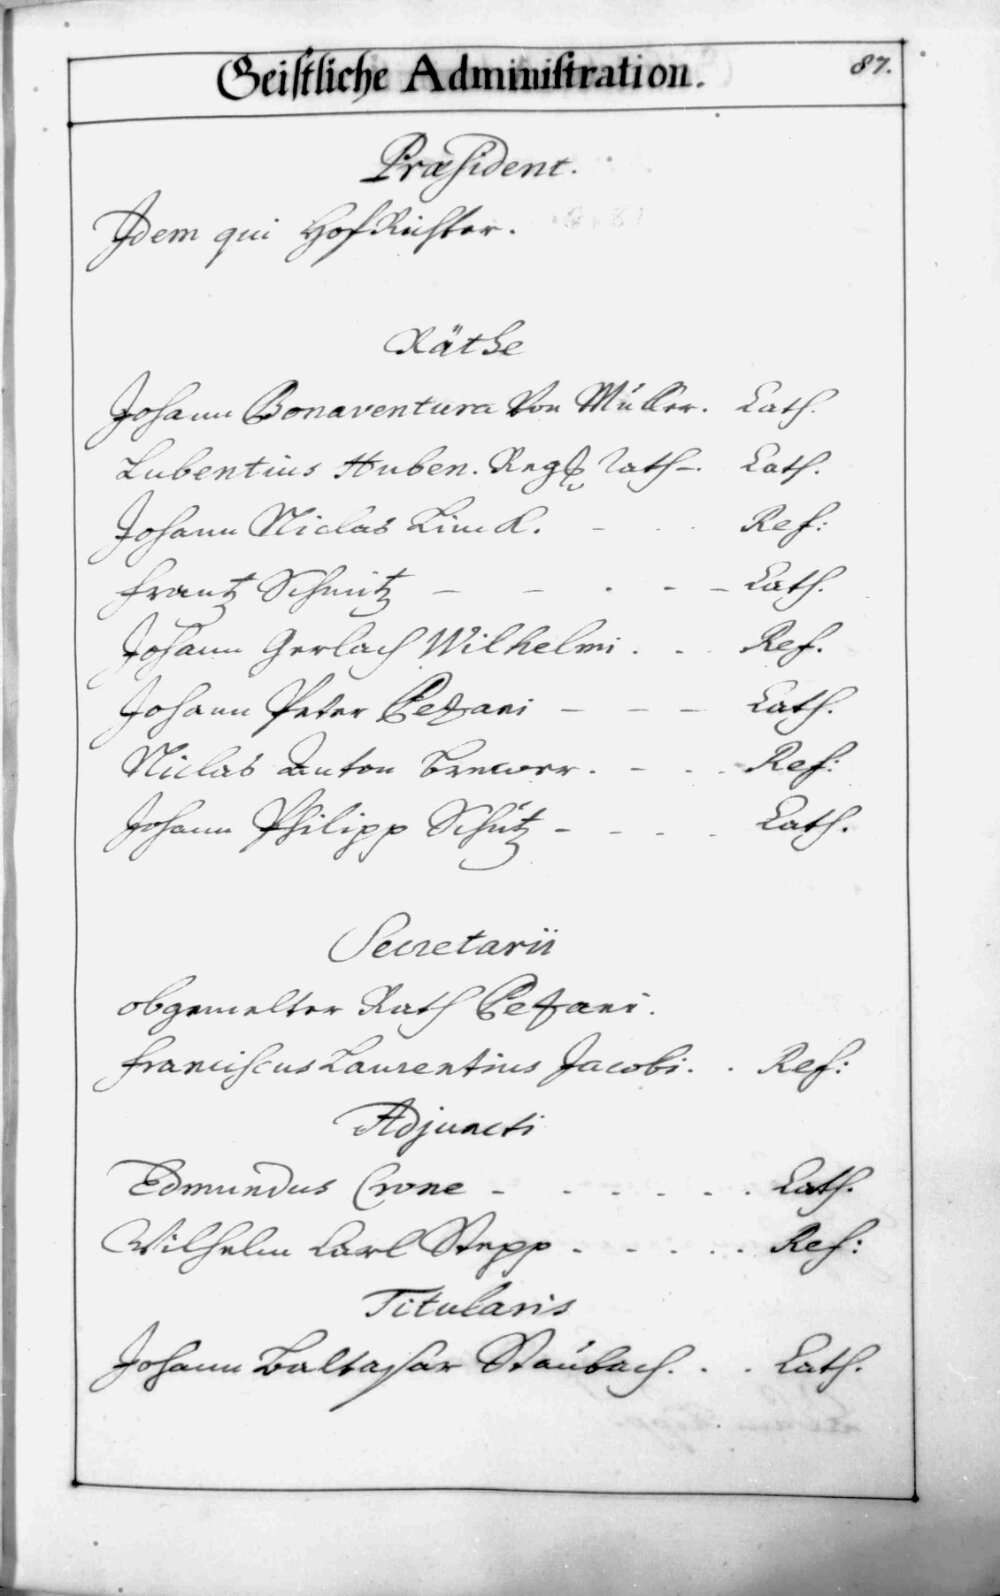 Geistliche Administration.
87.
Præsident.
Idem qui HofRichter.
Räthe
Johann Bonaventura Von Müller. Cath.
Lubentius Huben. Rath. Cath.
Johann Niclas Linck. - - Ref:
Frantz Schmitz - - - - - Cath.
Johann Gerlach Wilhelmi. - . Ref.
Johann Peter Pezani - - - Cath.
Niclas Anton Brewer. - - . Ref:
Johann Philipp Schütz - - - . Cath.
Secretarii
obgemelter Rath Pezani.
Franciscus Laurentius Jacobi. . Ref:
Adjuncti
Edmundus Crone - - - - - . Cath.
Wilhelm Carl Stepp. - - - . Ref:
Titularis
Johann Baltasar Staubach. . . Cath.